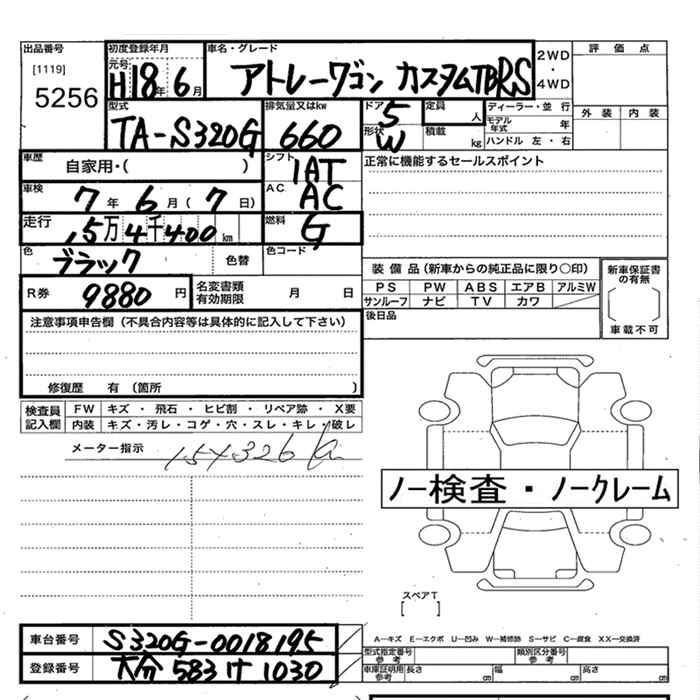 出品番号
[1119]
5256
初度登録年月
元号
H18年6月
車名・グレード
アトレーワゴン カスタムTBRS
2WD
・
4WD
評 価 点
外 装 内 装
型式
TA-S320G
排気量又はkw
660
ドア
5
形状
W
定員
人
積載
kg
ディーラー・並 行
モデル年式 年
ハンドル 左 ・ 右
車歴
自家用・( )
シフト
IAT
正常に機能するセールスポイント
車検
7年6月(7日)
AC
AC
走行
万4千400km
燃料
G
色
ブラック
色替
色コード
装 備 品 (新車からの純正品に限り〇印)
PS PW ABS エアB アルミW
サンルーフ ナビ TV カワ
新車保証書の有無
車載不可
R券
9880円
名変書類
有効期限
月 日
後日品
注意事項申告欄(不具合内容等は具体的に記入して下さい)
修復歴 有 (箇所 )
検査員記入欄
FW キズ ・ 飛石 ・ ヒビ割 ・ リペア跡 ・ X要
内装 キズ・汚レ・コゲ・穴・スレ・キレ・破レ
メーター指示
ノー検査・ノークレーム
スペアT
[ ]
A―キズ E―エクボ U―凹み W―補修跡 S―サビ C―腐食 XX―交換済
車台番号
S320G-0018195
登録番号
大分 583 け 1030
型式指定番号
参考
類別区分番号
参考
車庫証明用
参考
長さ cm 幅 cm 高さ cm